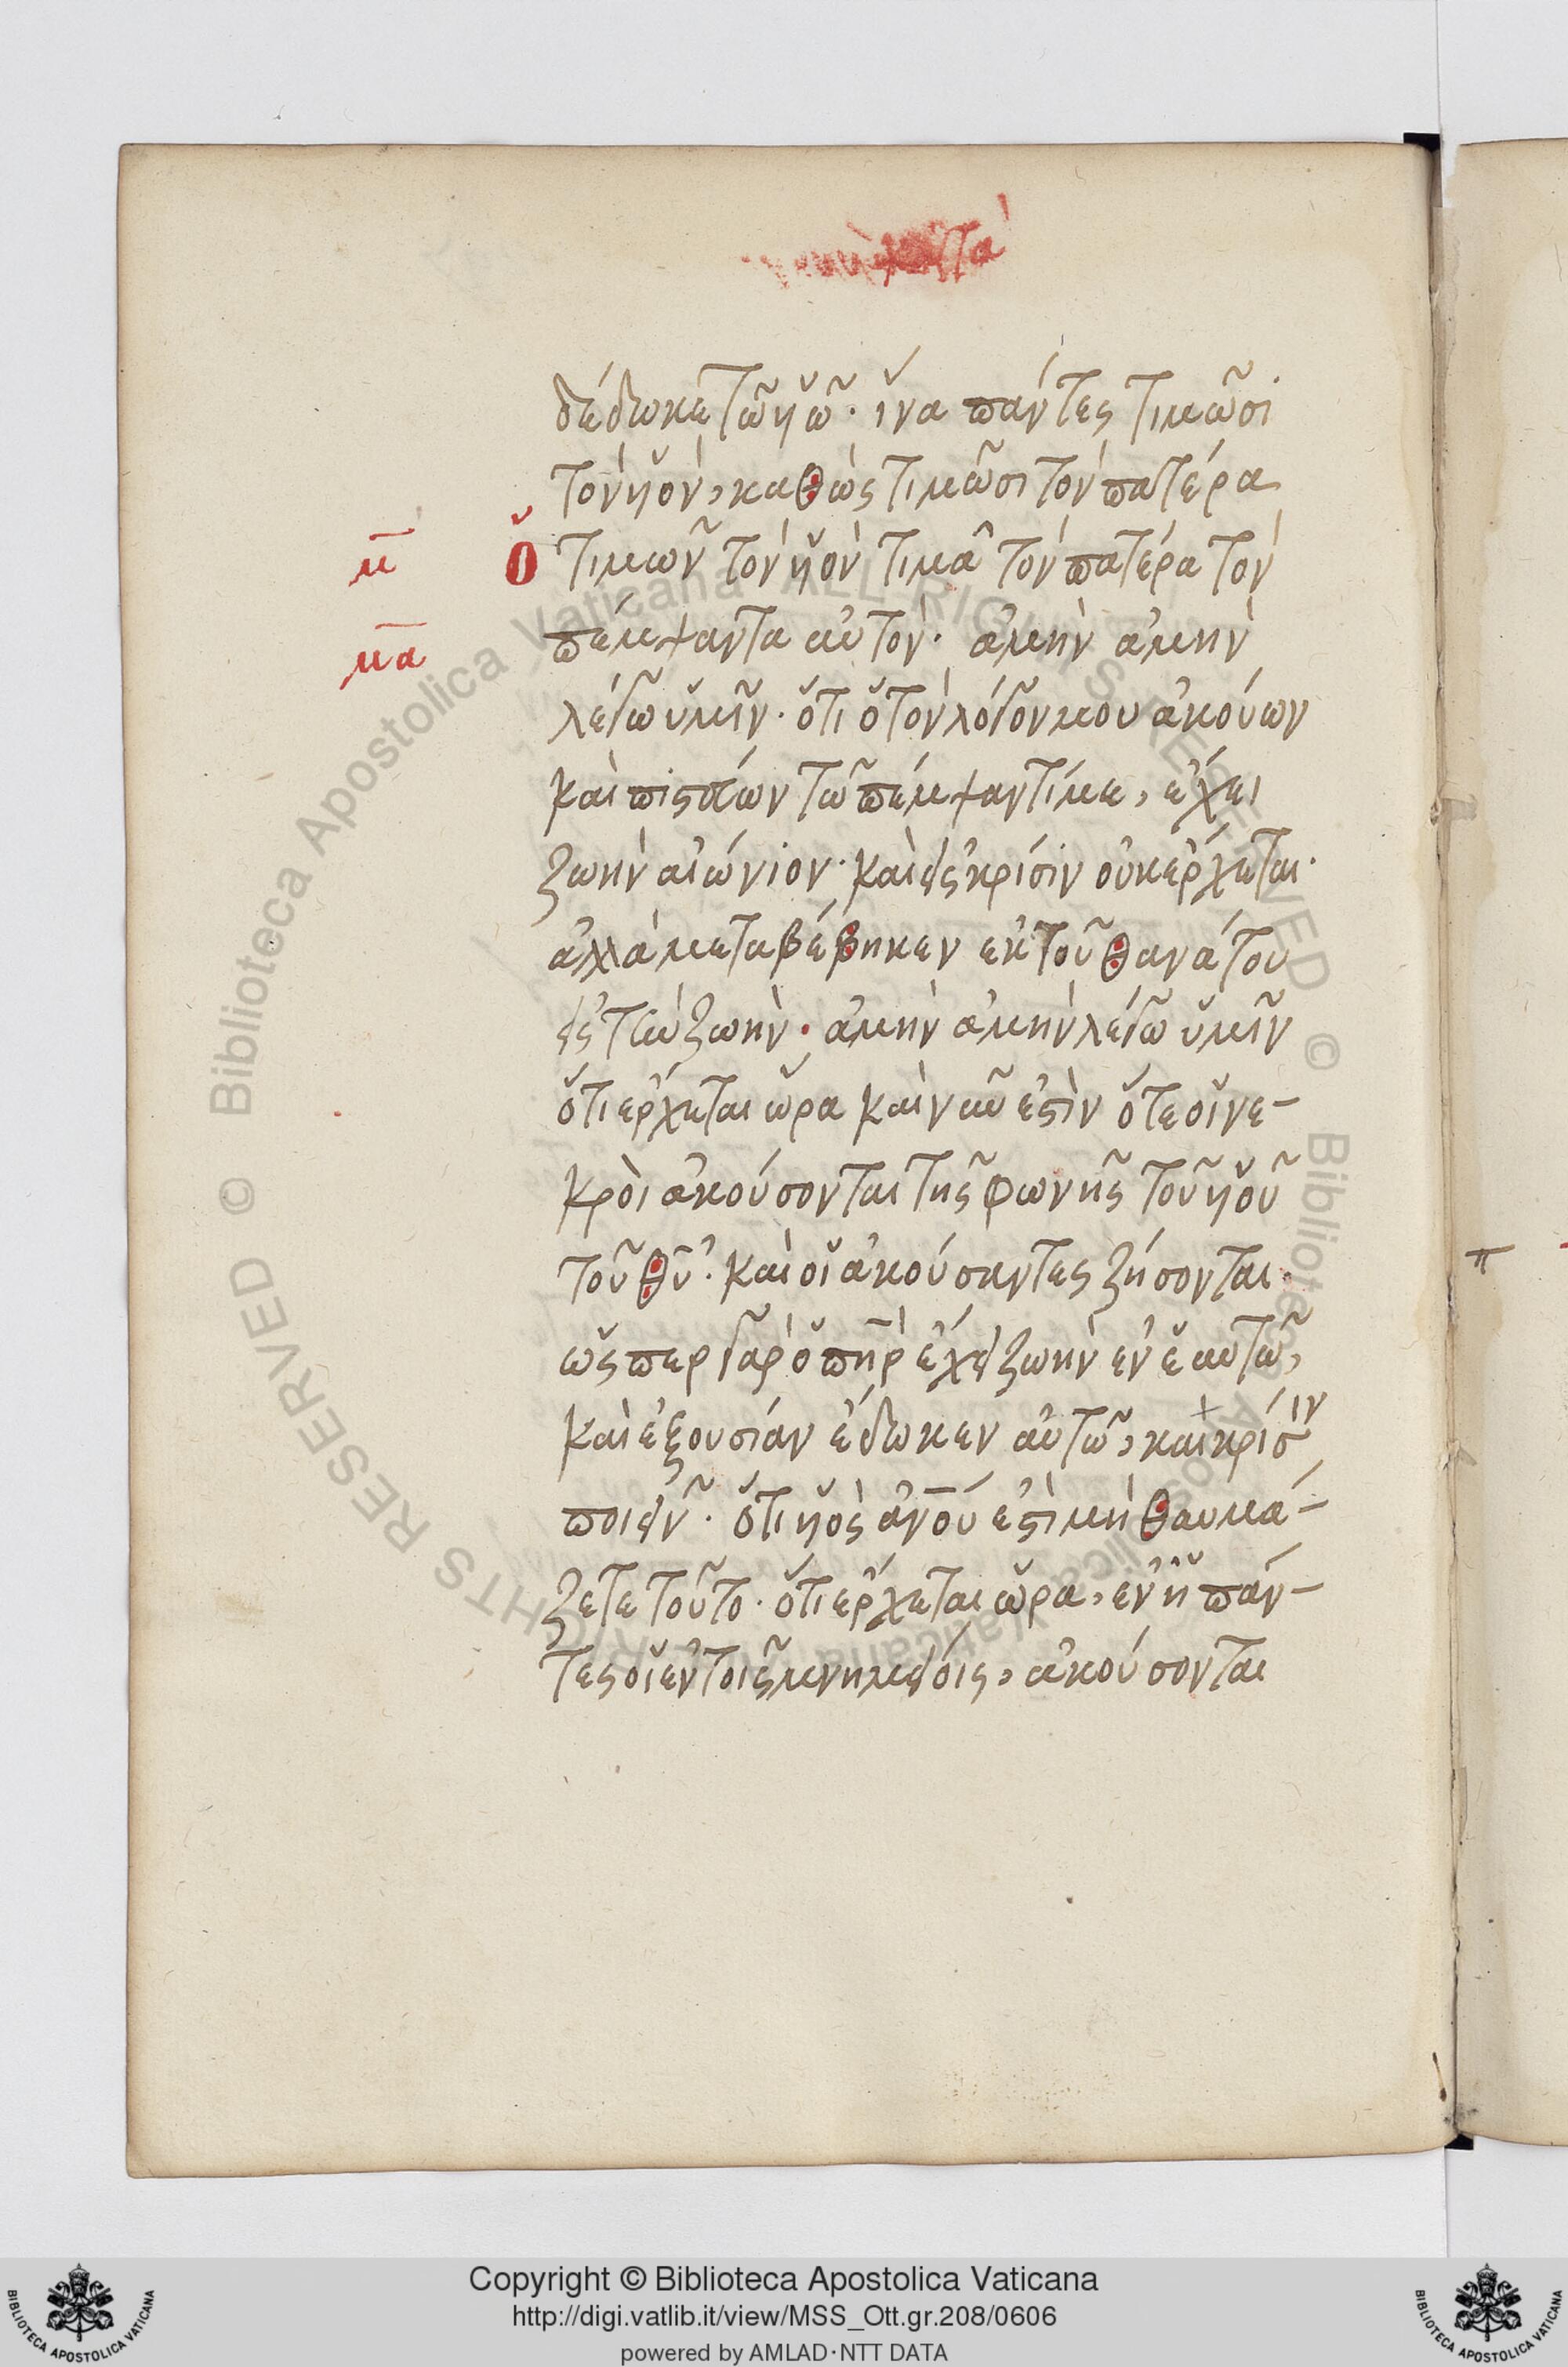 κατα
δέδωκε τῶ ὑῶ· ἵνα πάντες τιμῶσι
τὸν ὑὸν, καθὼς τιμῶσι τὸν πατέρα
μ Ὁ τιμῶν τὸν ὑὸν τιμᾶ τὸν πατέρα τὸν
μα πέμψαντα αὐτόν· ἀμὴν ἀμὴν
λέγω ὑμῖν· ὅτι ὁ τὸν λόγον μου ἀκούων
καὶ πιστεύων τῶ πέμψαντί με, ἔχει
ζωὴν αἰώνιον· καὶ εἰς κρίσιν οὐκ ἔρχεται·
ἀλλὰ μεταβέβηκεν ἐκ τοῦ θανάτου
εἰς τὴν ζωὴν· ἀμὴν ἀμὴν λέγω ὑμῖν
ὅτι ἔρχεται ὥρα καὶ νῦν ἐστὶν ὅτε οἱ νε-
κροὶ ἀκούσονται τῆς φωνῆς τοῦ ὑοῦ
τοῦ θυ· καὶ οἱ ἀκούσαντες ζήσονται·
ὥσπερ γὰρ ὁ πηρ ἔχει ζωὴν ἐν ἑαυτῶ,
καὶ ἐξουσίαν ἔδωκεν αὐτῶ, καὶ κρίσιν
ποιεῖν· ὅτι ὑὸς ἀνου ἐστὶ μὴ θαυμά-
ζετε τοῦτο· ὅτι ἔρχεται ὥρα, ἐν ἧ πάν-
τες οἱ ἐν τοῖς μνημείοις, ἀκούσονται
π
Copyright © Biblioteca Apostolica Vaticana
http://digi.vatlib.it/view/MSS_Ott.gr.208/0606
powered by AMLAD·NTT DATA
© Biblioteca Apostolica Vaticana ALL RIGHTS RESERVED
© Biblioteca Apostolica Vaticana ALL RIGHTS RESERVED
BIBLIOTECA APOSTOLICA VATICANA
BIBLIOTECA APOSTOLICA VATICANA